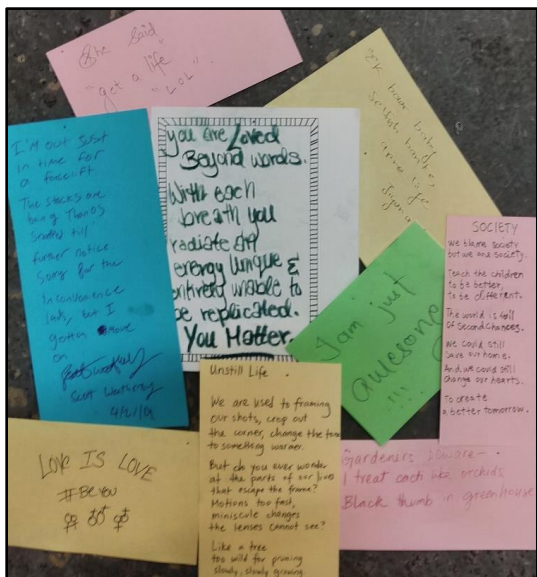 She Said
"get a life"
"LOL".
being
selfish
I'm out just
in time for
a facelift.
The stacks are
being Thanos
Snatched till
further notice
Sorry for the
Inconvenience
lads, but I
gotta move
on
Scott Worthney
you are Loved
Beyond words.
With each
breath you
radiate an
energy Unique &
entirely unable to
be replicated.
You Matter.
I am just
awesome
!!!
SOCIETY
We blame society
but we are society.
Teach the children
to be better,
to be different.
The world is full
of second chances.
We could still
save our home.
And we could still
change our hearts.
To create
a better tomorrow.
LOVE IS LOVE
#BE YOU
⚢ ⚣ ⚤
Unstill Life
We are used to framing
our shots, crop out
the corner, change the tone
to something warmer.
But do you ever wonder
at the parts of our lives
that escape the frame?
Motions too fast,
miniscule changes
the lenses cannot see?
Like a tree
too wild for pruning
slowly, slowly growing.
Gardeners beware-
I treat cacti like orchids
Black thumb in greenhouse